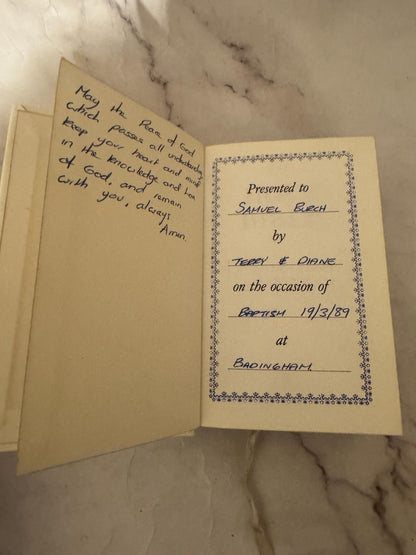 May the Peace of God
which passes all understanding
keep your heart and mind
in the knowledge and love
of God, and remain
with you, always
Amen.
Presented to
SAMUEL BURCH
by
TERRY & DIANE
on the occasion of
BAPTISM 19/3/89
at
BADINGHAM